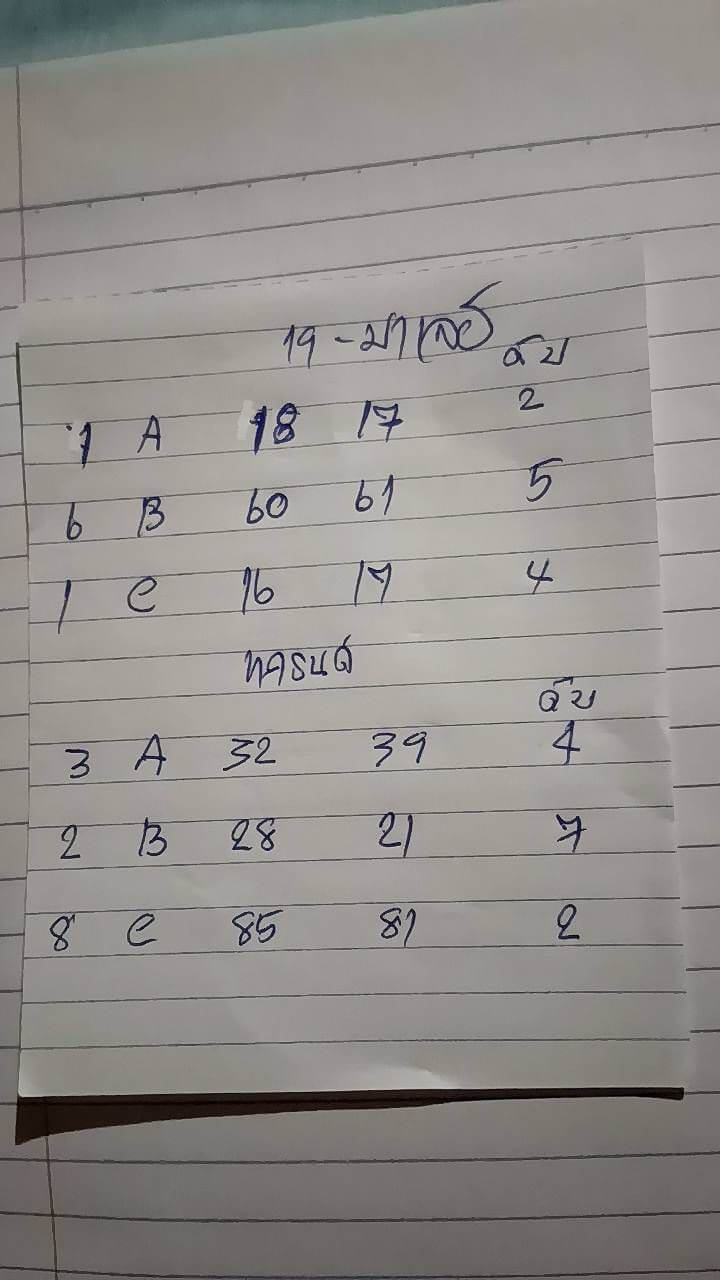 19 - มาเลย์
ดับ
1 A 18 17 2
6 B 60 61 5
1 C 16 17 4
ดับ
3 A 32 39 4
2 B 28 21 7
8 C 85 81 2